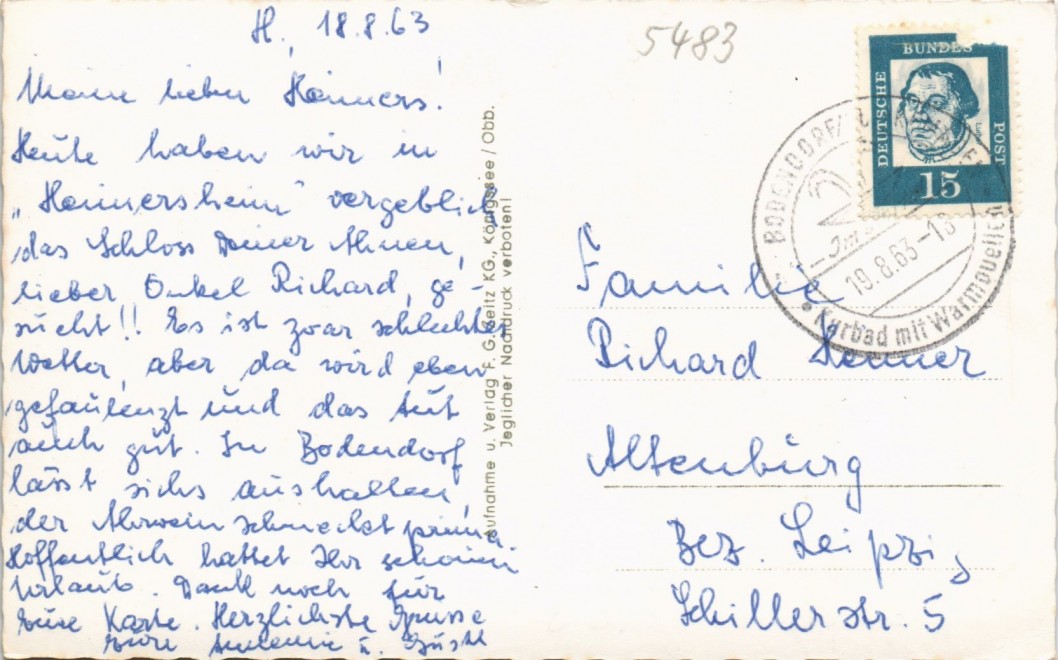 H., 18.8.63
5483
Meine lieben Heimers!
Heute haben wir in
"Heimersheim" vergeblich
das Schloss Deiner Ahnen,
lieber Onkel Richard, ge-
sucht!! Es ist zwar schlechtes
Wetter, aber da wird eben
gefaulenzt und das tut
auch gut. In Bodendorf
lässt sichs aushalten,
der Ahrwein schmeckt prima.
Hoffentlich hattet Ihr schönen
Urlaub. Dank noch für
Eure Karte. Herzlichste Grüsse
Eure u. Gustl
Aufnahme u. Verlag F. G. Zeitz KG., Königssee / Obb.
Jeglicher Nachdruck verboten!
DEUTSCHE
BUNDES
POST
15
BODENDORF/
Im
19.8.63-18
Kurbad mit Warmquelle
Familie
Richard Heimer
Altenburg
Bez. Leipzig
Schillerstr. 5